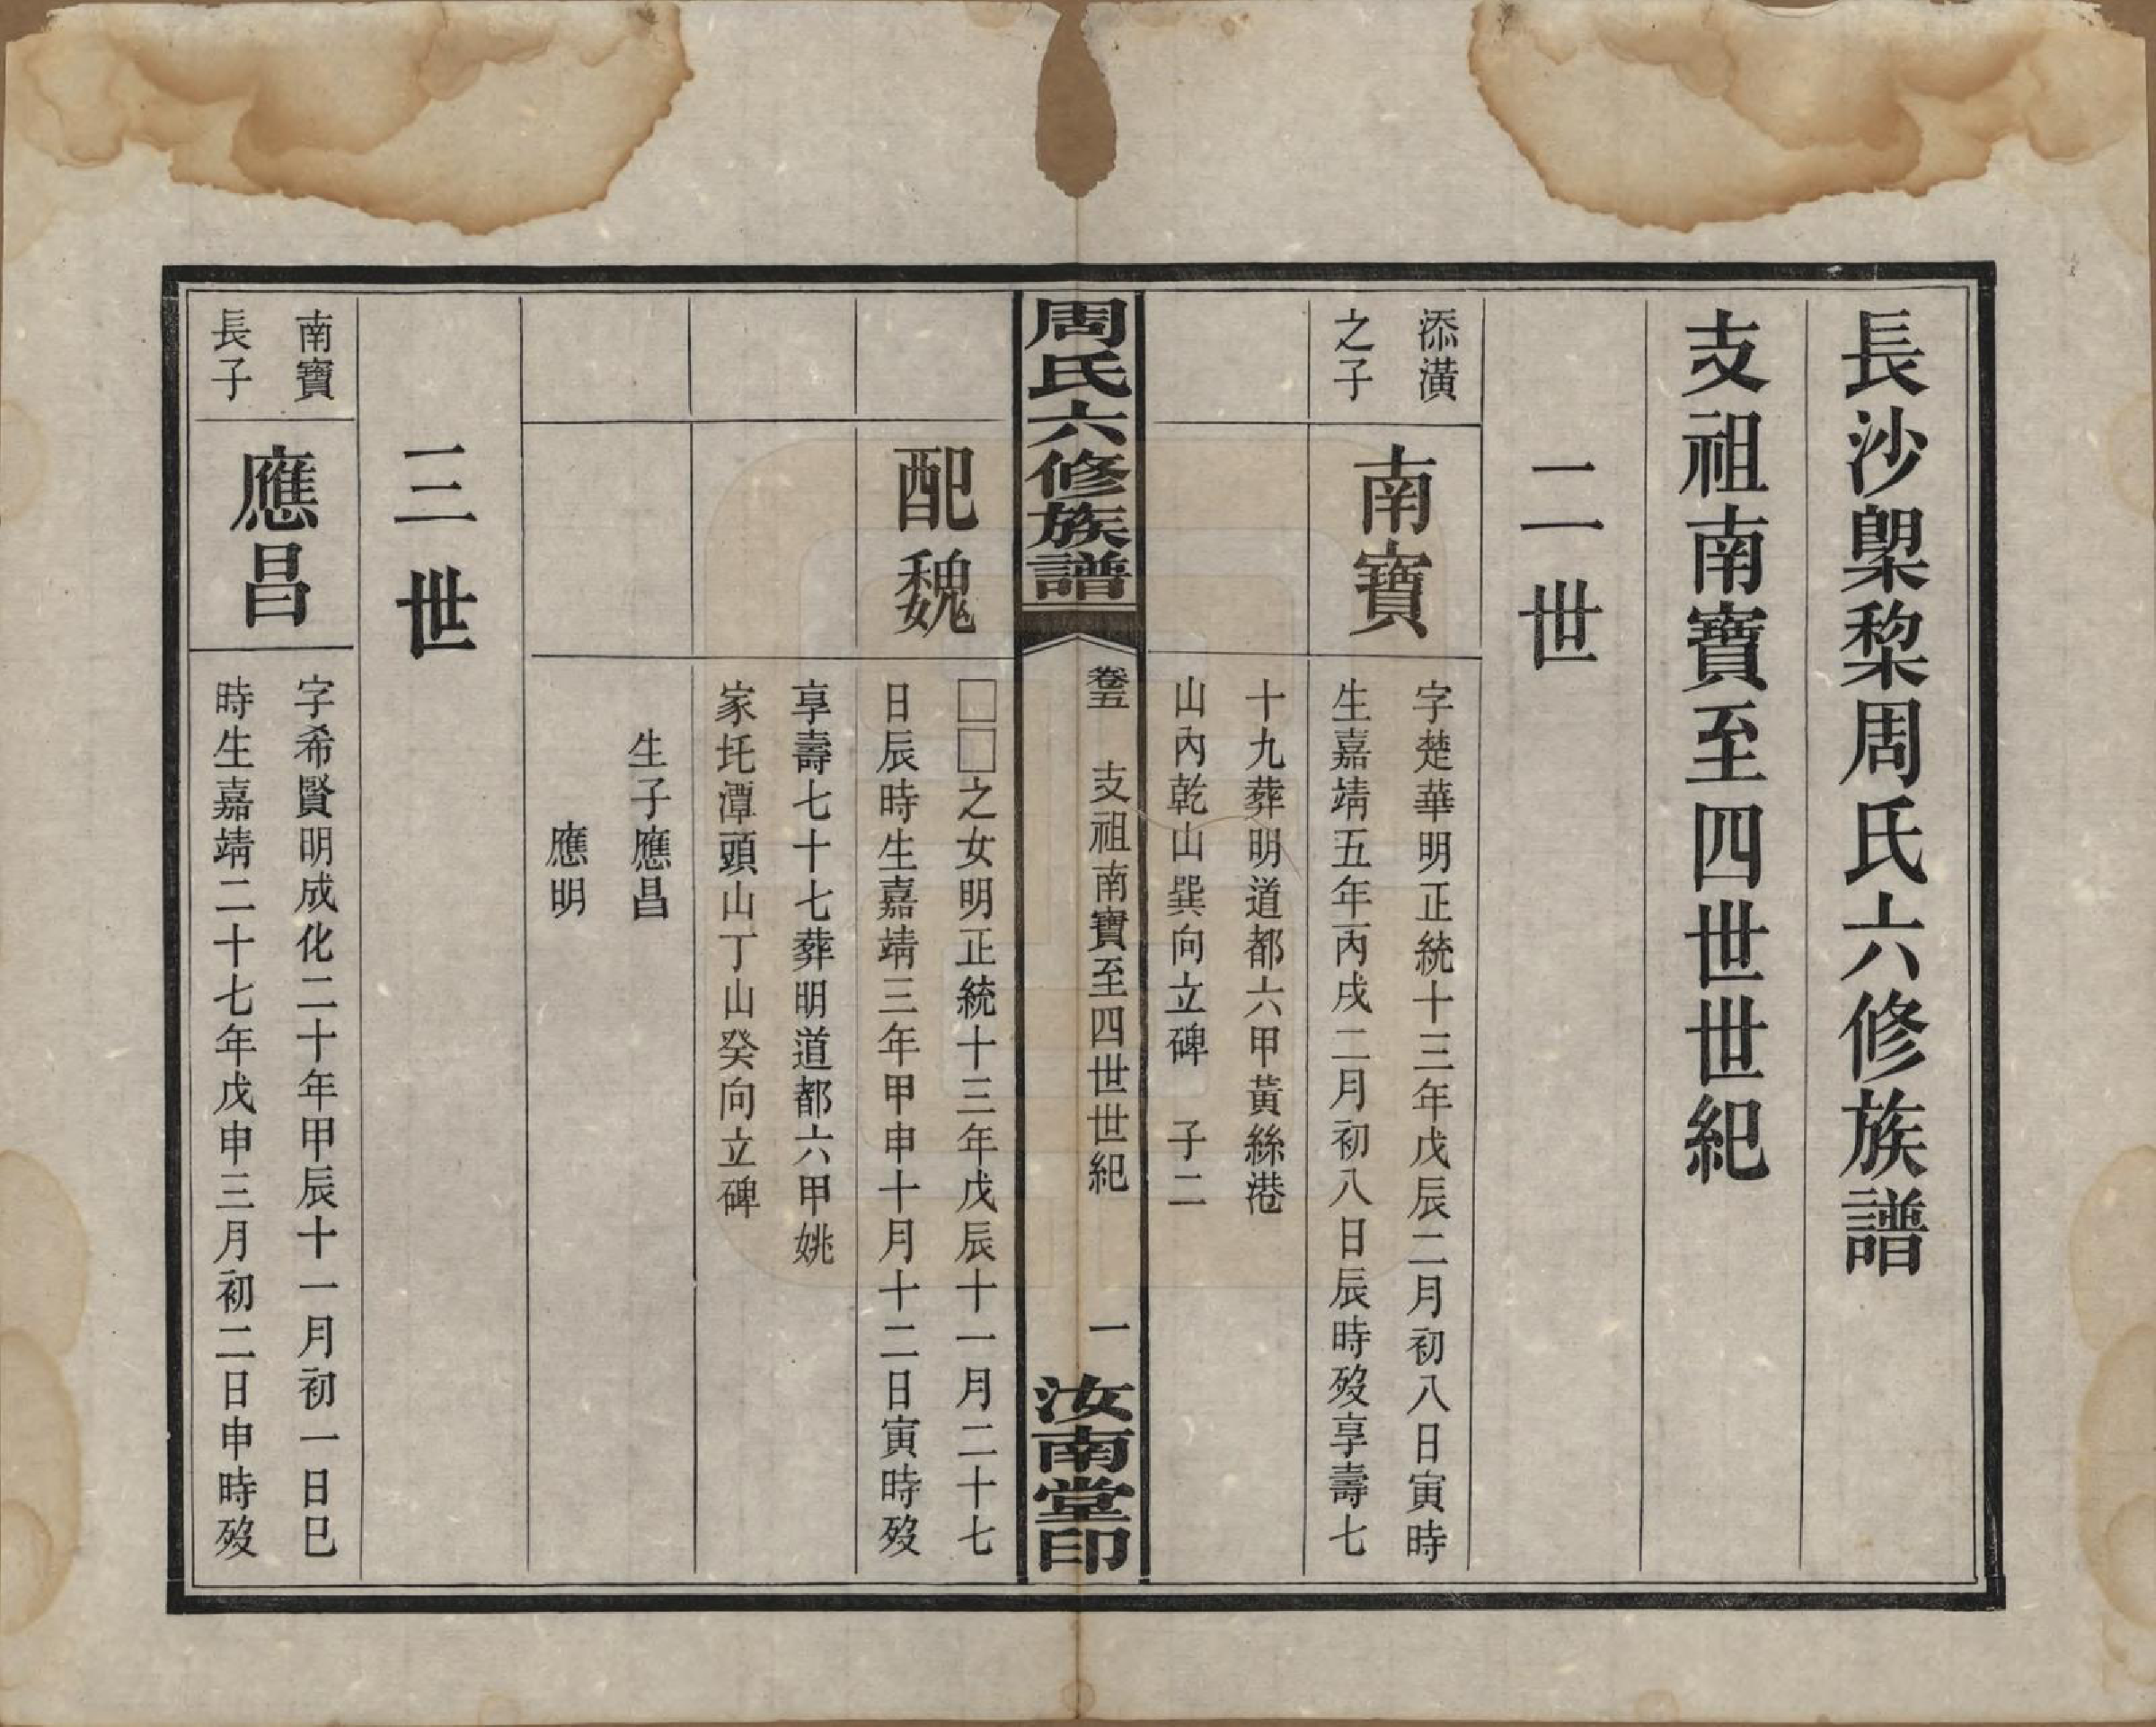 長沙㮚棃周氏六修族譜
支祖南寶至四世世紀
二世
添潢
之子
南寶
字楚華明正統十三年戊辰二月初八日寅時
生嘉靖五年丙戌二月初八日辰時歿享壽七
十九葬明道都六甲黃絲港
山內乾山巽向立碑 子二
周氏六修族譜
卷五 支祖南寶至四世世紀 一
汝南堂印
配魏
□□之女明正統十三年戊辰十一月二十七
日辰時生嘉靖三年甲申十月十二日寅時歿
享壽七十七葬明道都六甲姚
家圫潭頭山丁山癸向立碑
生子應昌
應明
三世
南寶
長子
應昌
字希賢明成化二十年甲辰十一月初一日巳
時生嘉靖二十七年戊申三月初二日申時歿